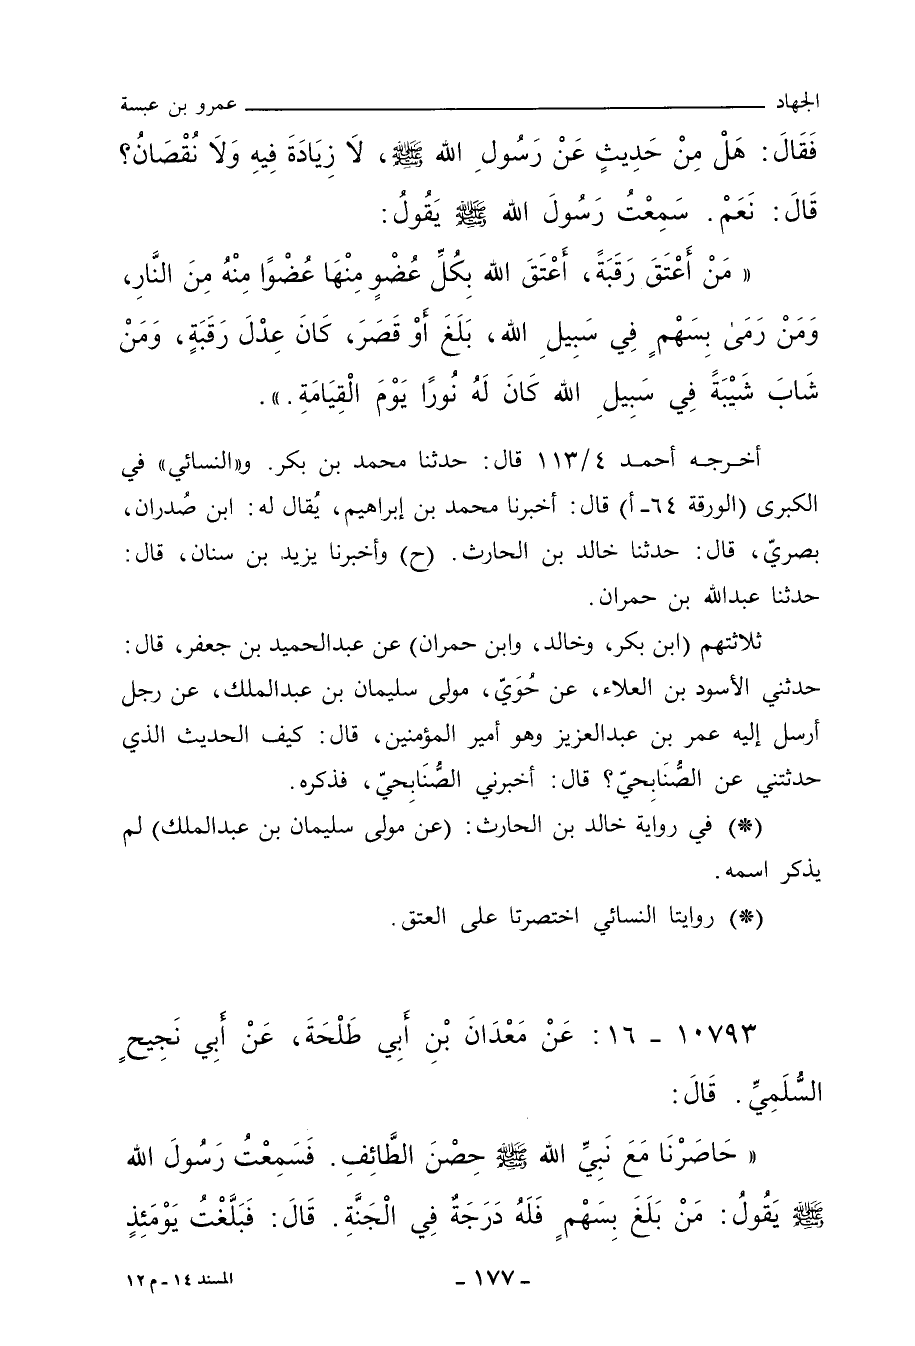 الجهاد ـــــــــــــــــــــ عمرو بن عبسة
فَقَالَ: هَلْ مِنْ حَدِيثٍ عَنْ رَسُولِ الله ﷺ، لَا زِيَادَةَ فِيهِ وَلَا نُقْصَانُ؟
قَالَ: نَعَمْ. سَمِعْتُ رَسُولَ الله ﷺ يَقُولُ:
« مَنْ أَعْتَقَ رَقَبَةً، أَعْتَقَ الله بِكُلِّ عُضْوٍ مِنْهَا عُضْوًا مِنْهُ مِنَ النَّارِ،
وَمَنْ رَمَىٰ بِسَهْمٍ فِي سَبِيلِ الله، بَلَغَ أَوْ قَصَرَ، كَانَ عِدْلَ رَقَبَةٍ، وَمَنْ
شَابَ شَيْبَةً فِي سَبِيلِ الله كَانَ لَهُ نُورًا يَوْمَ الْقِيَامَةِ.».
أخرجه أحمد ٤/١١٣ قال: حدثنا محمد بن بكر. و«النسائي» في
الكبرى (الورقة ٦٤ـ أ) قال: أخبرنا محمد بن إبراهيم، يُقال له: ابن صُدران،
بصريّ، قال: حدثنا خالد بن الحارث. (ح) وأخبرنا يزيد بن سنان، قال:
حدثنا عبدالله بن حمران.
ثلاثتهم (ابن بكر، وخالد، وابن حمران) عن عبدالحميد بن جعفر، قال:
حدثني الأسود بن العلاء، عن حُوَيّ، مولى سليمان بن عبدالملك، عن رجل
أرسل إليه عمر بن عبدالعزيز وهو أمير المؤمنين، قال: كيف الحديث الذي
حدثتني عن الصُّنَابِحيّ؟ قال: أخبرني الصُّنَابِحيّ، فذكره.
(*) في رواية خالد بن الحارث: (عن مولى سليمان بن عبدالملك) لم
يذكر اسمه.
(*) روايتا النسائي اختصرتا على العتق.
١٠٧٩٣ - ١٦: عَنْ مَعْدَانَ بْنِ أَبِي طَلْحَةَ، عَنْ أَبِي نَجِيحٍ
السُّلَمِيِّ. قَالَ:
« حَاصَرْنَا مَعَ نَبِيِّ الله ﷺ حِصْنَ الطَّائِفِ. فَسَمِعْتُ رَسُولَ الله
ﷺ يَقُولُ: مَنْ بَلَغَ بِسَهْمٍ فَلَهُ دَرَجَةٌ فِي الْجَنَّةِ. قَالَ: فَبَلَّغْتُ يَوْمَئِذٍ
- ١٧٧ -
المسند ١٤ـ م ١٢